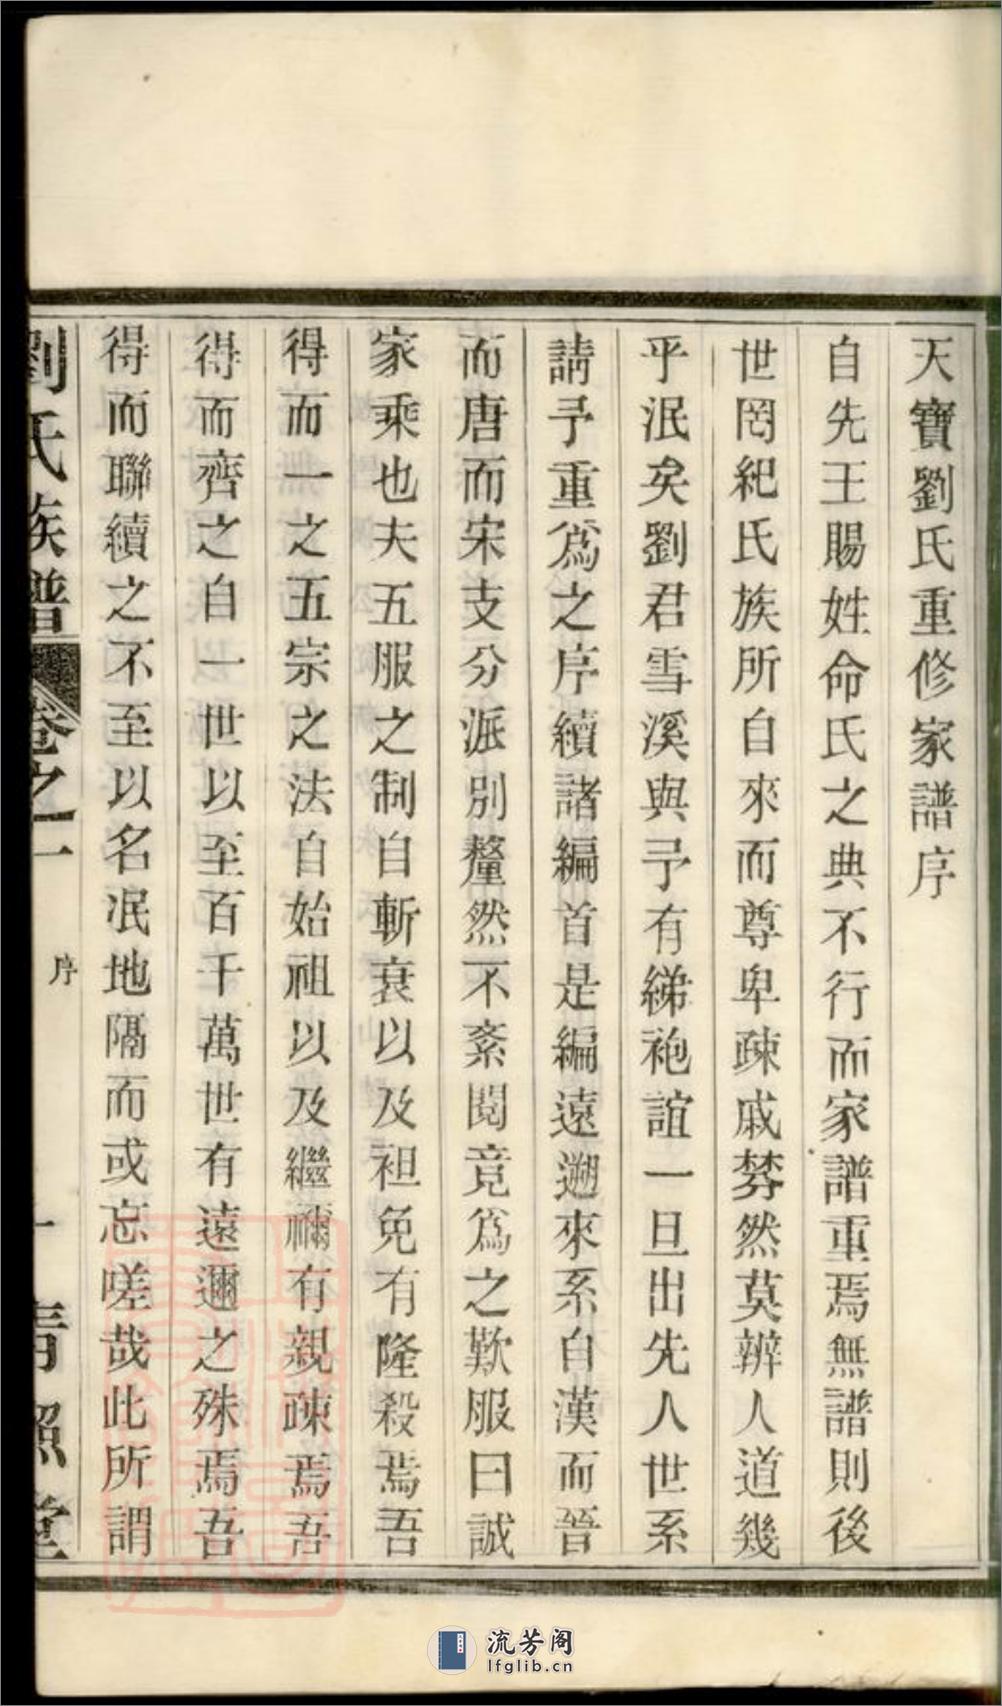 天寶劉氏重修家譜序
自先王賜姓命氏之典不行而家譜重焉無譜則後
世罔紀氏族所自來而尊卑疎戚棼然莫辨人道幾
乎泯矣劉君雪溪與予有綈袍誼一旦出先人世系
請予重爲之序續諸編首是編遠遡來系自漢而晉
而唐而宋支分派別釐然不紊閱竟爲之歎服曰誠
家乘也夫五服之制自斬衰以及袒免有隆殺焉吾
得而一之五宗之法自始祖以及繼禰有親疎焉吾
得而齊之自一世以至百千萬世有遠邇之殊焉吾
得而聯續之不至以名冺地隔而或忘嗟哉此所謂
劉氏族譜 卷之一 序 一 青照堂
流芳阁
lfglib.cn